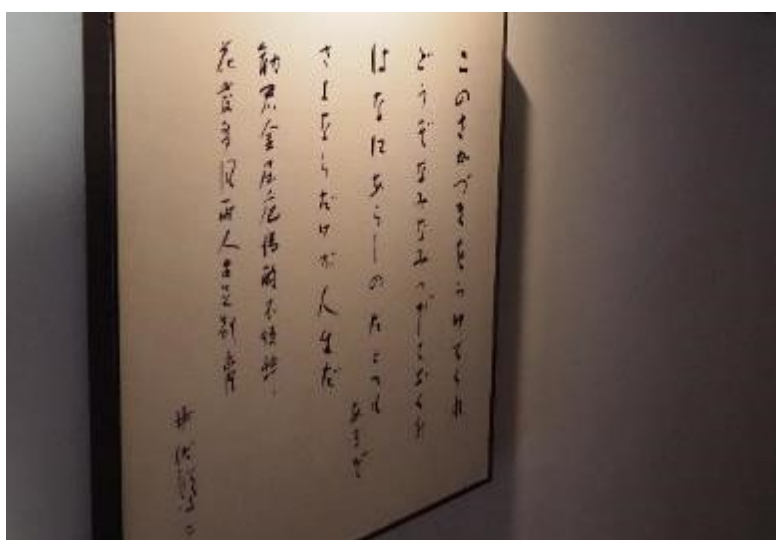 このさかづきをうけてくれ
どうぞなみなみつがしておくれ
はなにあらしのたとへも
あるぞ
さよならだけが人生だ
勧君金屈卮満酌不須辞
花發多風雨人生足別離
井伏鱒二